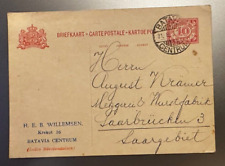 BRIEFKAART · CARTE POSTALE · KARTOE POS
BATAVIA
CENTRUM
10
Herrn
August Kramer
Metzgerei & Wurstfabrik
Saarbrücken 3
Saargebiet
H. E. B. WILLEMSEN.
Kramat 18
BATAVIA CENTRUM